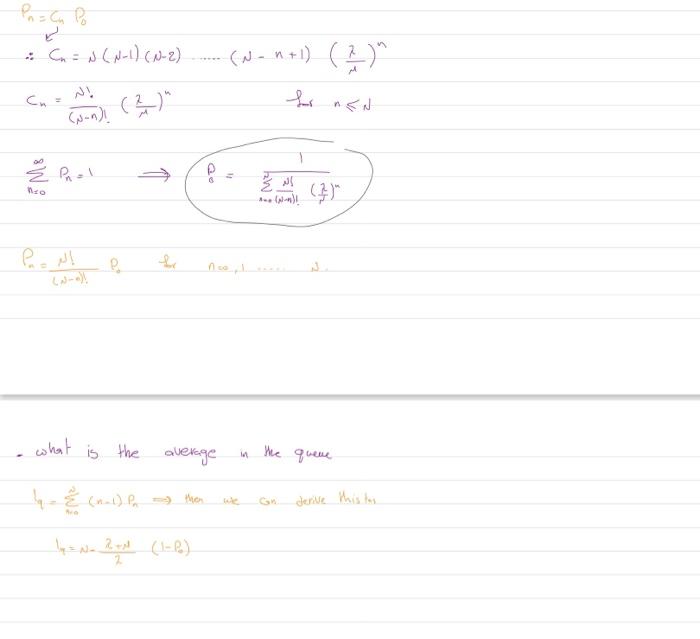 Pn = Cn P0
∴ Cn = N (N-1) (N-2) ...... (N - n + 1) (λ/μ)^n
Cn = N!/(N-n)! (λ/μ)^n for n ≤ N
∞ Σ n=0 Pn = 1 ⟹ P0 = 1 / (N Σ n=0 N!/(N-n)! (λ/μ)^n)
Pn = N!/(N-n)! P0 for n=0, 1 ..... N.
- what is the average in the queue
lq = N Σ n=0 (n-1) Pn ⟹ then we can derive this
lq = N - λ+μ/λ (1-P0)